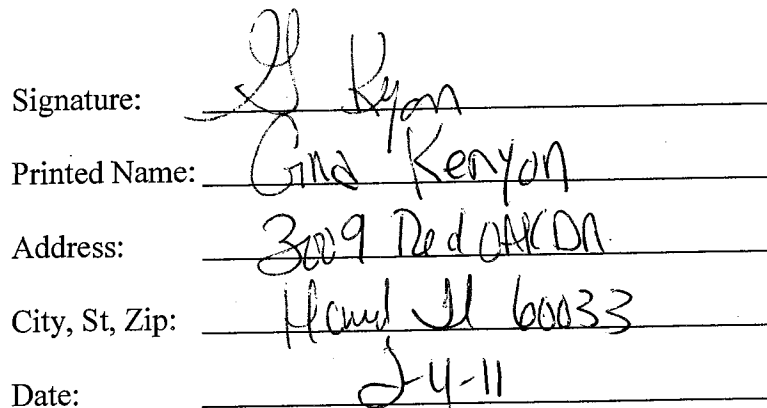 Signature: G Kyon
Printed Name: Gina Kenyon
Address: 3009 Red OAK DR
City, St, Zip: Il 60033
Date: 2-4-11